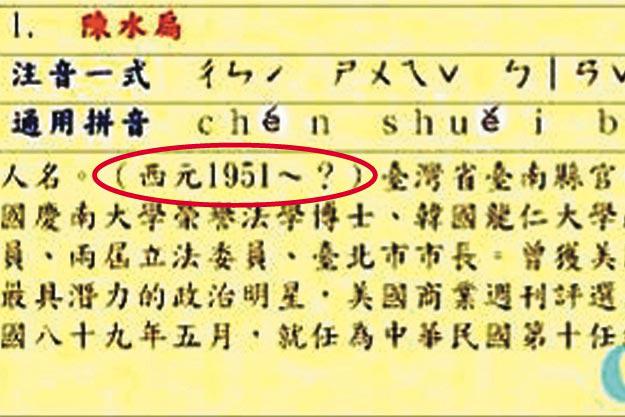 1. 陳水扁
注音一式 ㄔㄣˊ ㄕㄨㄟˇ ㄅㄧㄢˇ
通用拼音 chén shuěi b
人名。(西元1951～?)臺灣省臺南縣官
國慶南大學榮譽法學博士、韓國龍仁大學
員、兩屆立法委員、臺北市市長。曾獲美
最具潛力的政治明星，美國商業週刊評選
國八十九年五月，就任為中華民國第十任